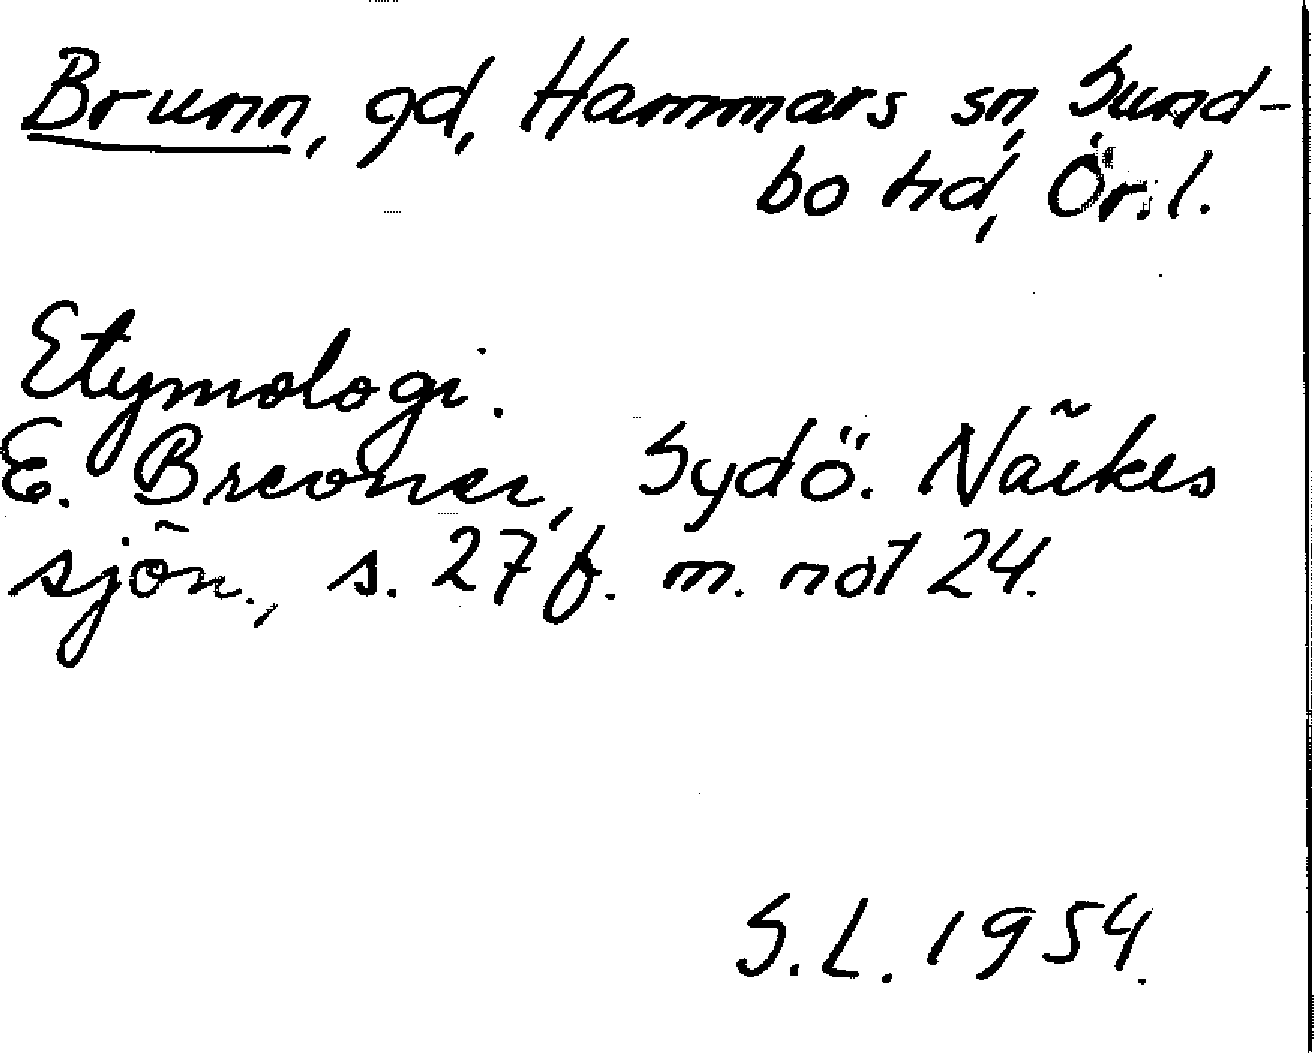 Brunn, gd, Hammars sn, Sund-
bo hd, Ör. l.
Etymologi.
E. Brevner, Sydö. Närkes
sjön., s. 27 f. m. not 24.
S. L. 1954.